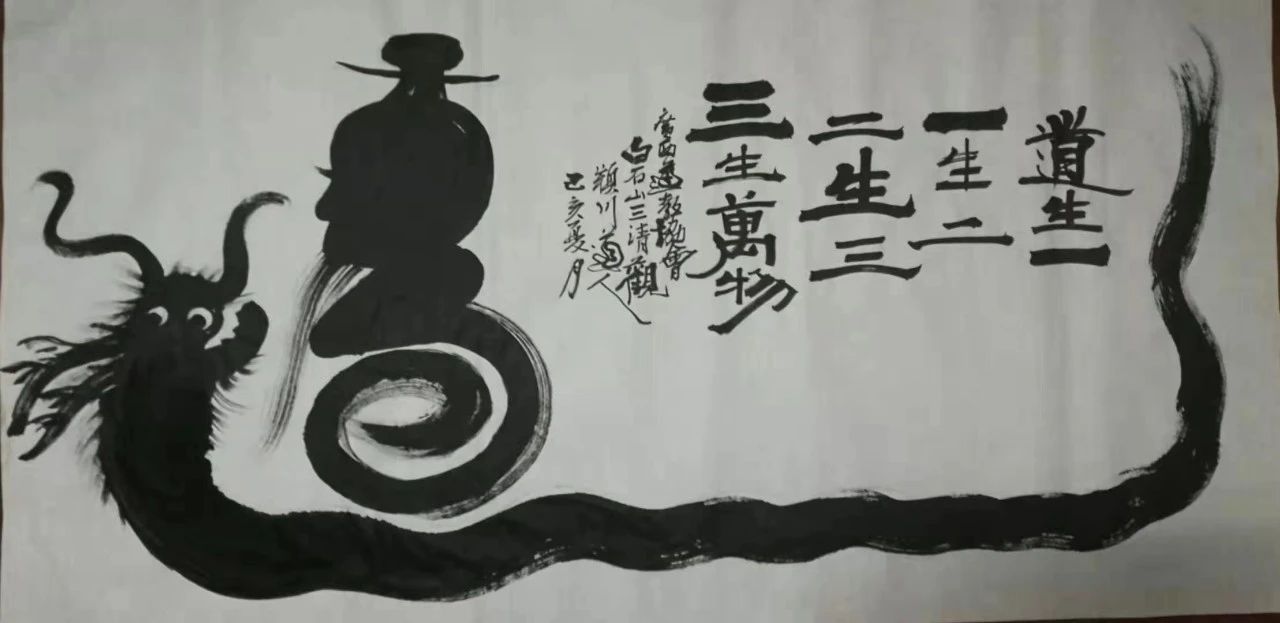 道生一
一生二
二生三
三生萬物
廣西道教協會
白石山三清觀
潁川道人
己亥夏月